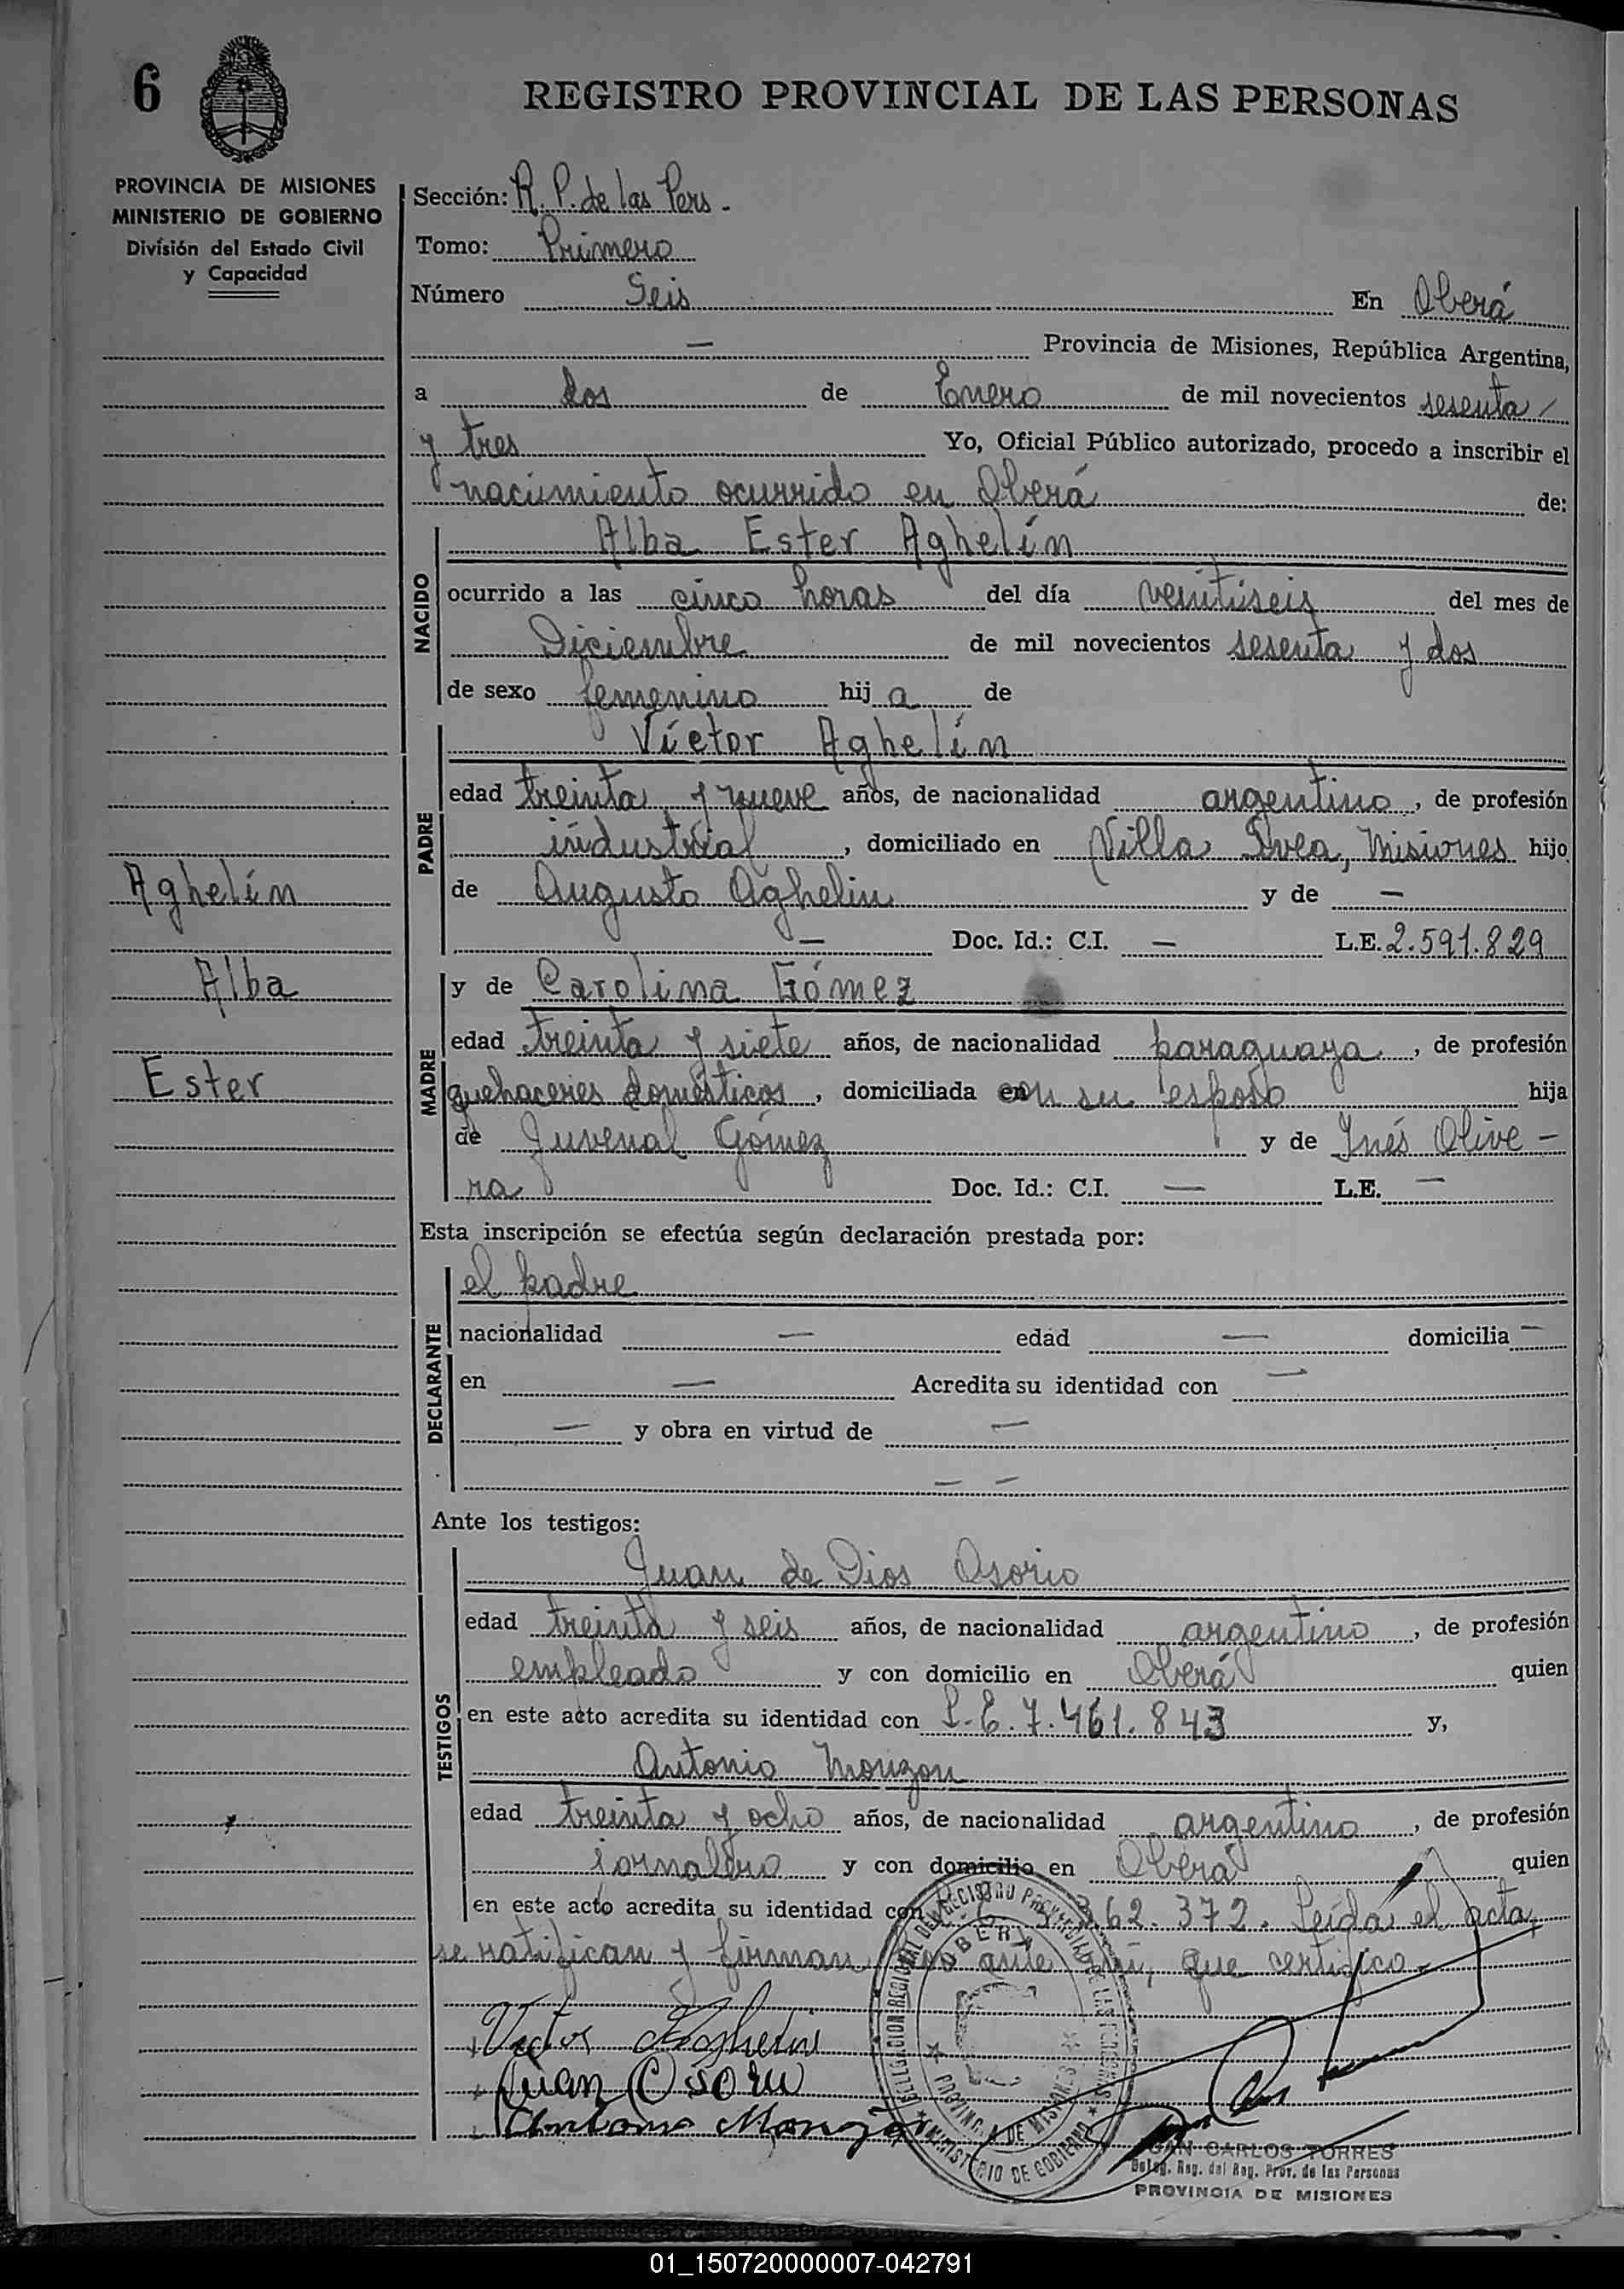 6
REGISTRO PROVINCIAL DE LAS PERSONAS
PROVINCIA DE MISIONES
MINISTERIO DE GOBIERNO
División del Estado Civil
y Capacidad
Sección: R. P. de las Pers -
Tomo: Primero
Número Seis En Oberá
— Provincia de Misiones, República Argentina,
a dos de Enero de mil novecientos sesenta /
y tres Yo, Oficial Público autorizado, procedo a inscribir el
nacimiento ocurrido en Oberá de:
NACIDO
Alba Ester Aghelín
ocurrido a las cinco horas del día veintiseis del mes de
Diciembre de mil novecientos sesenta y dos
de sexo femenino hij a de
PADRE
Víctor Aghelín
edad treinta y nueve años, de nacionalidad argentino, de profesión
industrial, domiciliado en Villa Svea, Misiones hijo
de Augusto Aghelin y de —
— Doc. Id.: C.I. — L.E. 2.591.829
Aghelín
Alba
Ester
MADRE
y de Carolina Gómez
edad treinta y siete años, de nacionalidad paraguaya, de profesión
quehaceres domésticos, domiciliada en con su esposo hija
de Juvenal Gómez y de Inés Olive -
ra Doc. Id.: C.I. — L.E. —
Esta inscripción se efectúa según declaración prestada por:
DECLARANTE
el padre
nacionalidad — edad — domicilia —
en — Acredita su identidad con —
— y obra en virtud de —
— —
Ante los testigos:
TESTIGOS
Juan de Dios Osorio
edad treinta y seis años, de nacionalidad argentino, de profesión
empleado y con domicilio en Oberá quien
en este acto acredita su identidad con L. E. 7.461.843 y,
Antonio Monzon
edad treinta y ocho años, de nacionalidad argentino, de profesión
jornalero y con domicilio en Oberá quien
en este acto acredita su identidad con 362.372. Leída el acta,
se ratifican y firman ante mí, que certifico.-
Victor Aghelin
Juan Osorio
Antonio Monzon
DELEGACION REGIONAL DEL REGISTRO PROVINCIAL DE LAS PERSONAS
OBERA
PROVINCIA DE MISIONES
MINISTERIO DE GOBIERNO
JUAN CARLOS TORRES
Deleg. Reg. del Reg. Prov. de las Personas
PROVINCIA DE MISIONES
01_150720000007-042791